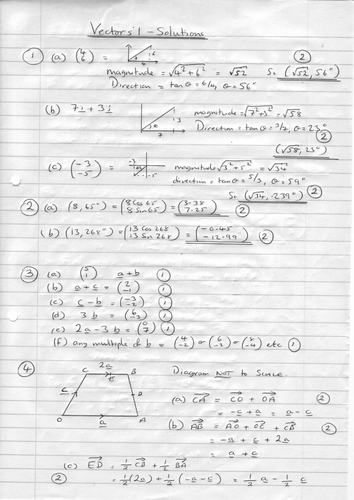 Vectors 1 - Solutions
① (a) (4 6) =
magnitude = √4²+6² = √52 So (√52, 56°) ②
Direction = tan θ = 6/4, θ = 56°
(b) 7i + 3j
magnitude = √7²+3² = √58
Direction = tan θ = 3/7, θ = 23°
(√58, 23°) ②
(c) (-3 -5) =
magnitude √3²+5² = √34
direction = tan θ = 5/3, θ = 59°
So (√34, -239°) ②
② (a) (8, 65°) = (8 Cos 65 8 Sin 65) = (3.38 7.25) ②
(b) (13, 268°) = (13 Cos 268 13 Sin 268) = (-0.45 -12.99) ②
③ (a) (5 1) a + b ①
(b) a + c = (2 -1) ①
(c) c - b = (-3 -2) ①
(d) 3b = (6 -3) ①
(e) 2a - 3b = (0 7) ①
(f) any multiple of b = (4 -2) or (6 -3) or (8 -4) etc ①
④ Diagram NOT to Scale.
C 2a B
E
c D
O a A
(a) CA = CO + OA
= -c + a = a - c ②
(b) AB = AO + OC + CB
= -a + c + 2a
= a + c ②
(c) ED = ½ CB + ½ BA
② = ½(2a) + ½(-a-c) = ½ a - ½ c